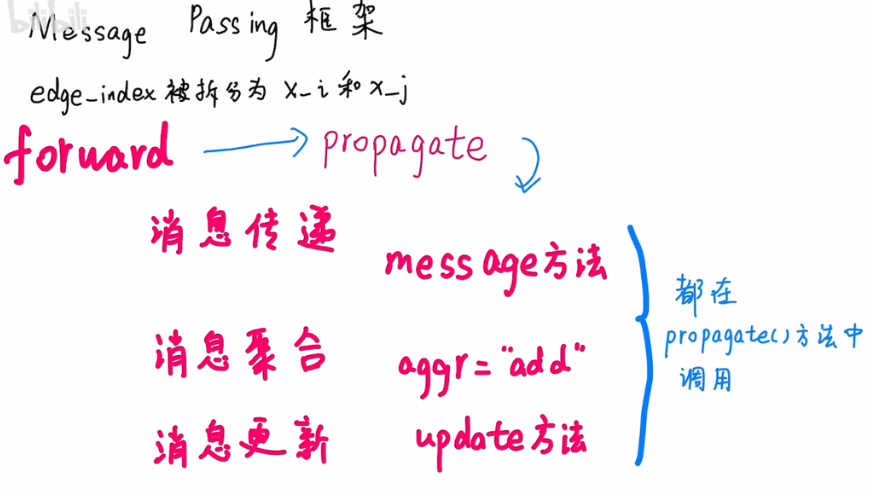 bilibili
Message Passing 框架
edge_index 被拆分为 x_i 和 x_j
forward → propagate
消息传递 message方法
消息聚合 aggr="add"
消息更新 update方法
都在
propagate()方法中
调用